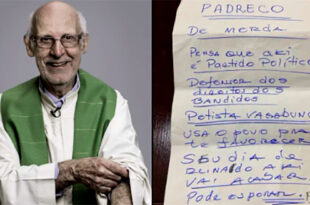 PADRECO
De MERDA
PENSA QUE AQI
é PARTIDO POLÍTICO
DEFENSOR DOS
DIREITOS DOS
BANDIDOS
Petista VAGABUNDO
USA O POVO PRA
te FAVORECER
SEU DIA DE
REINADO AQI
VAI ACABAR
Pode esperar.